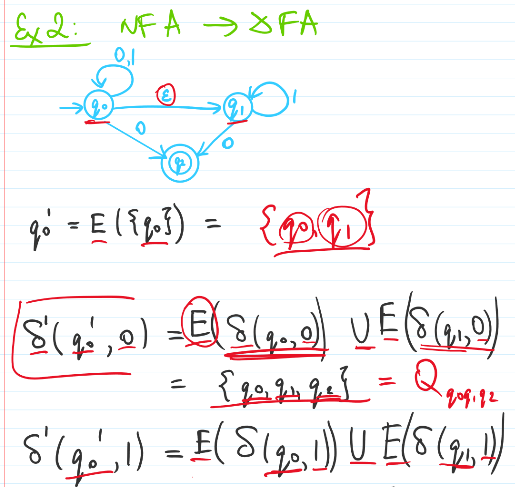 Ex2: NFA → DFA
0,1
q0 ε q1 1
0 0
q2
q0' = E({q0}) = {q0, q1}
δ'(q0', 0) = E(δ(q0,0)) ∪ E(δ(q1,0))
= {q0, q1, q2} = Q q0q1q2
δ'(q0', 1) = E(δ(q0,1)) ∪ E(δ(q1,1))